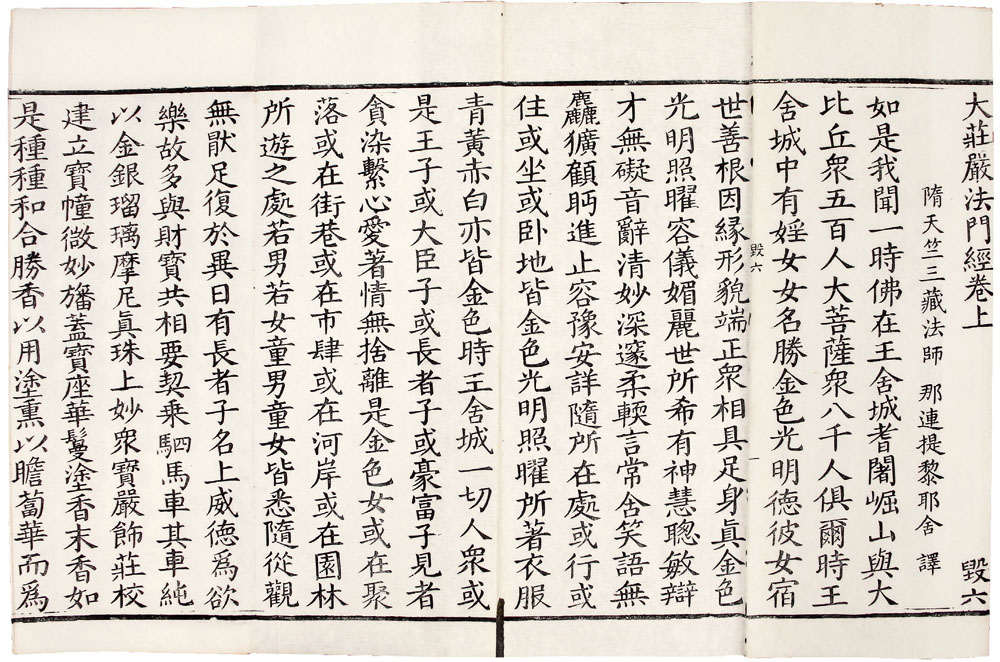 大莊嚴法門經卷上 毀六
隋天竺三藏法師 那連提黎耶舍 譯
如是我聞一時佛在王舍城耆闍崛山與大
比丘衆五百人大菩薩衆八千人俱爾時王
舍城中有婬女女名勝金色光明德彼女宿
毀六
世善根因緣形貌端正衆相具足身真金色
光明照曜容儀媚麗世所希有神慧聰敏辯
才無礙音辭清妙深邃柔輭言常含笑語無
麤獷顧眄進止容豫安詳隨所在處或行或
住或坐或卧地皆金色光明照曜所著衣服
青黃赤白亦皆金色時王舍城一切人衆或
是王子或大臣子或長者子或豪富子見者
貪染繫心愛著情無捨離是金色女或在聚
落或在街巷或在市肆或在河岸或在園林
所遊之處若男若女童男童女皆悉隨從觀
無厭足復於異日有長者子名上威德爲欲
樂故多與財寶共相要契乘駟馬車其車純
以金銀瑠璃摩尼真珠上妙衆寶嚴飾莊校
建立寶幢微妙旛蓋寶座華鬘塗香末香如
是種種和合勝香以用塗熏以瞻蔔華而爲